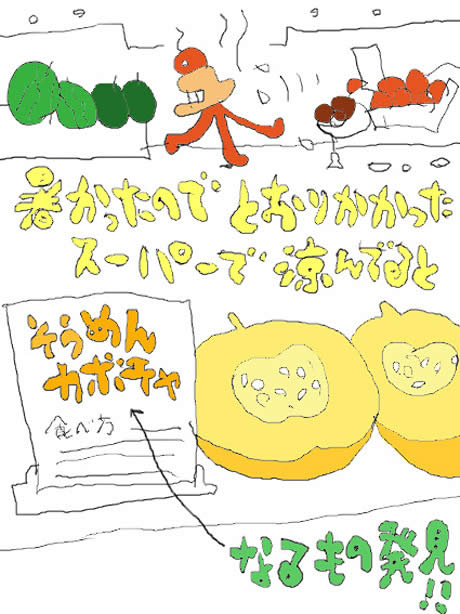 暑かったので とおりかかった
スーパーで 涼んでると
そうめん
カボチャ
食べ方
なるもの発見!!